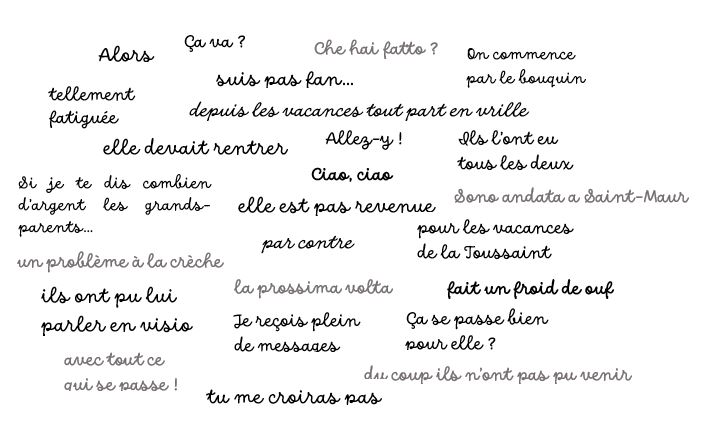 Ça va ?
Alors
Che hai fatto ?
On commence
par le bouquin
suis pas fan...
tellement
fatiguée
depuis les vacances tout part en vrille
elle devait rentrer
Allez-y !
Ils l'ont eu
tous les deux
Ciao, ciao
Si je te dis combien
d'argent les grands-
parents...
elle est pas revenue
Sono andata a Saint-Maur
par contre
pour les vacances
de la Toussaint
un problème à la crèche
ils ont pu lui
parler en visio
la prossima volta
fait un froid de ouf
Je reçois plein
de messages
Ça se passe bien
pour elle ?
avec tout ce
qui se passe !
du coup ils n'ont pas pu venir
tu me croiras pas